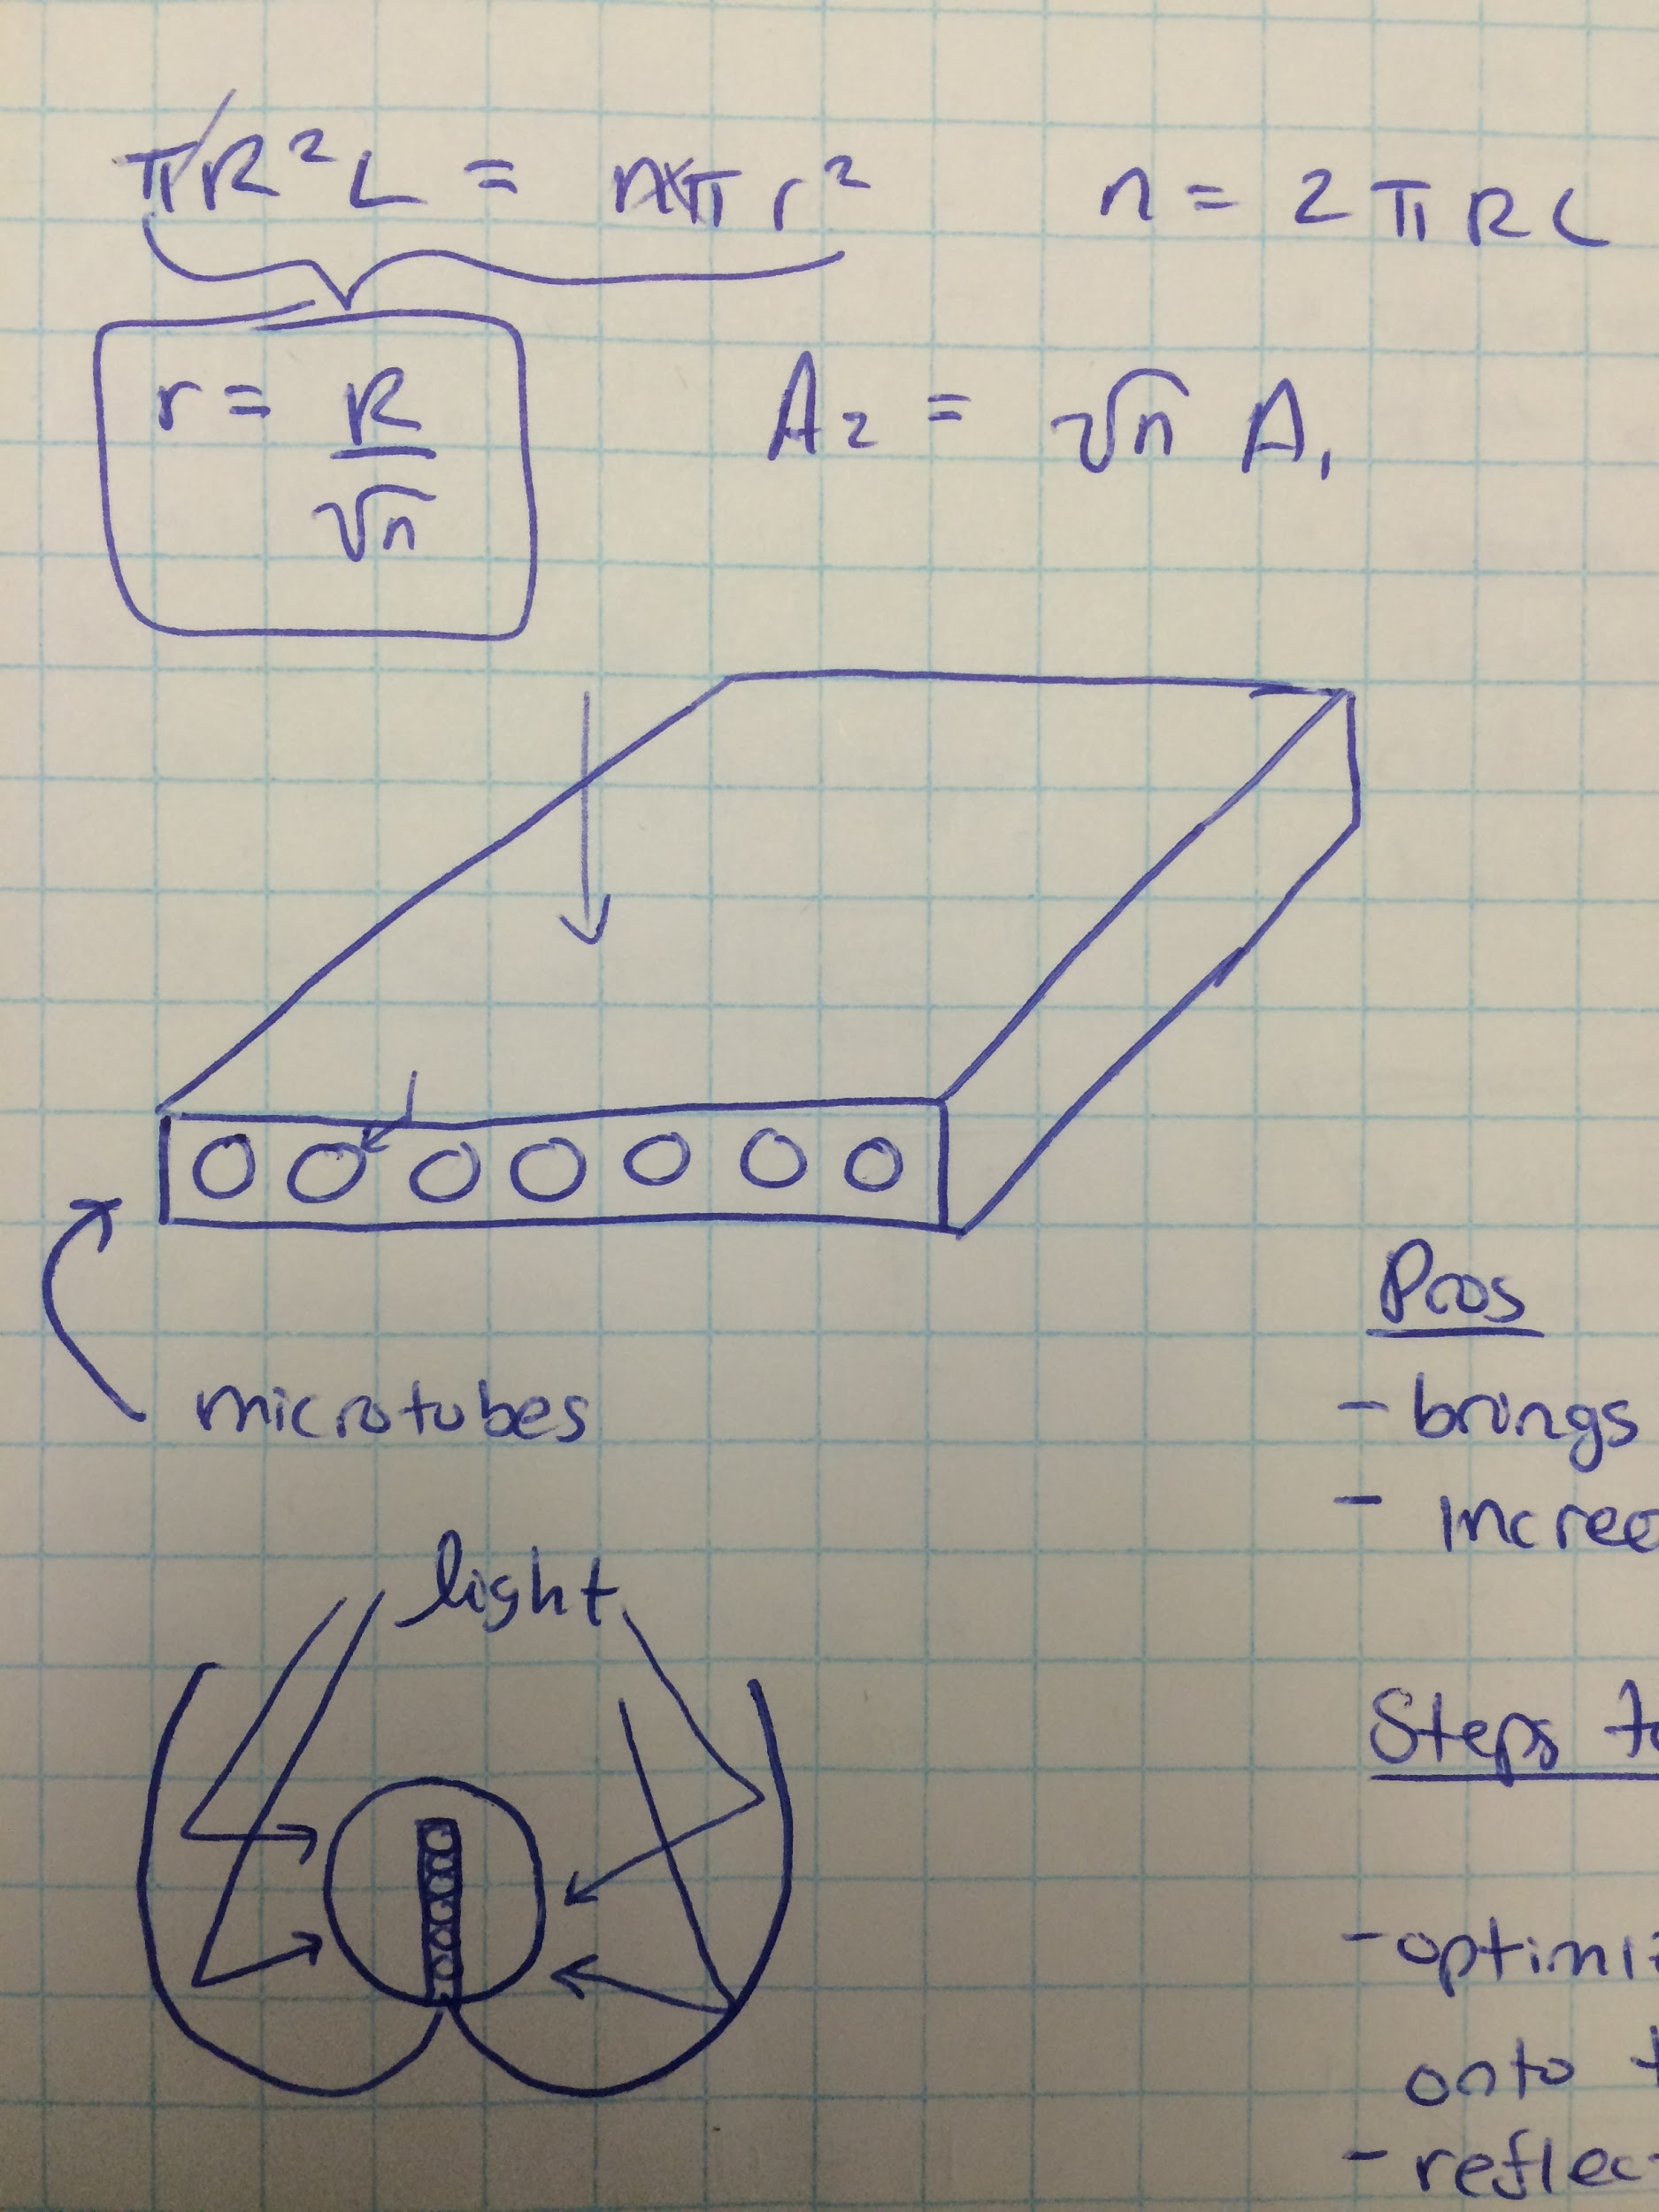 πR²L = nπr² n = 2πRL
r = R/√n A₂ = √n A₁
microtubes
Pros
- brings
- increa
light
Steps to
- optimiz
onto t
- reflect